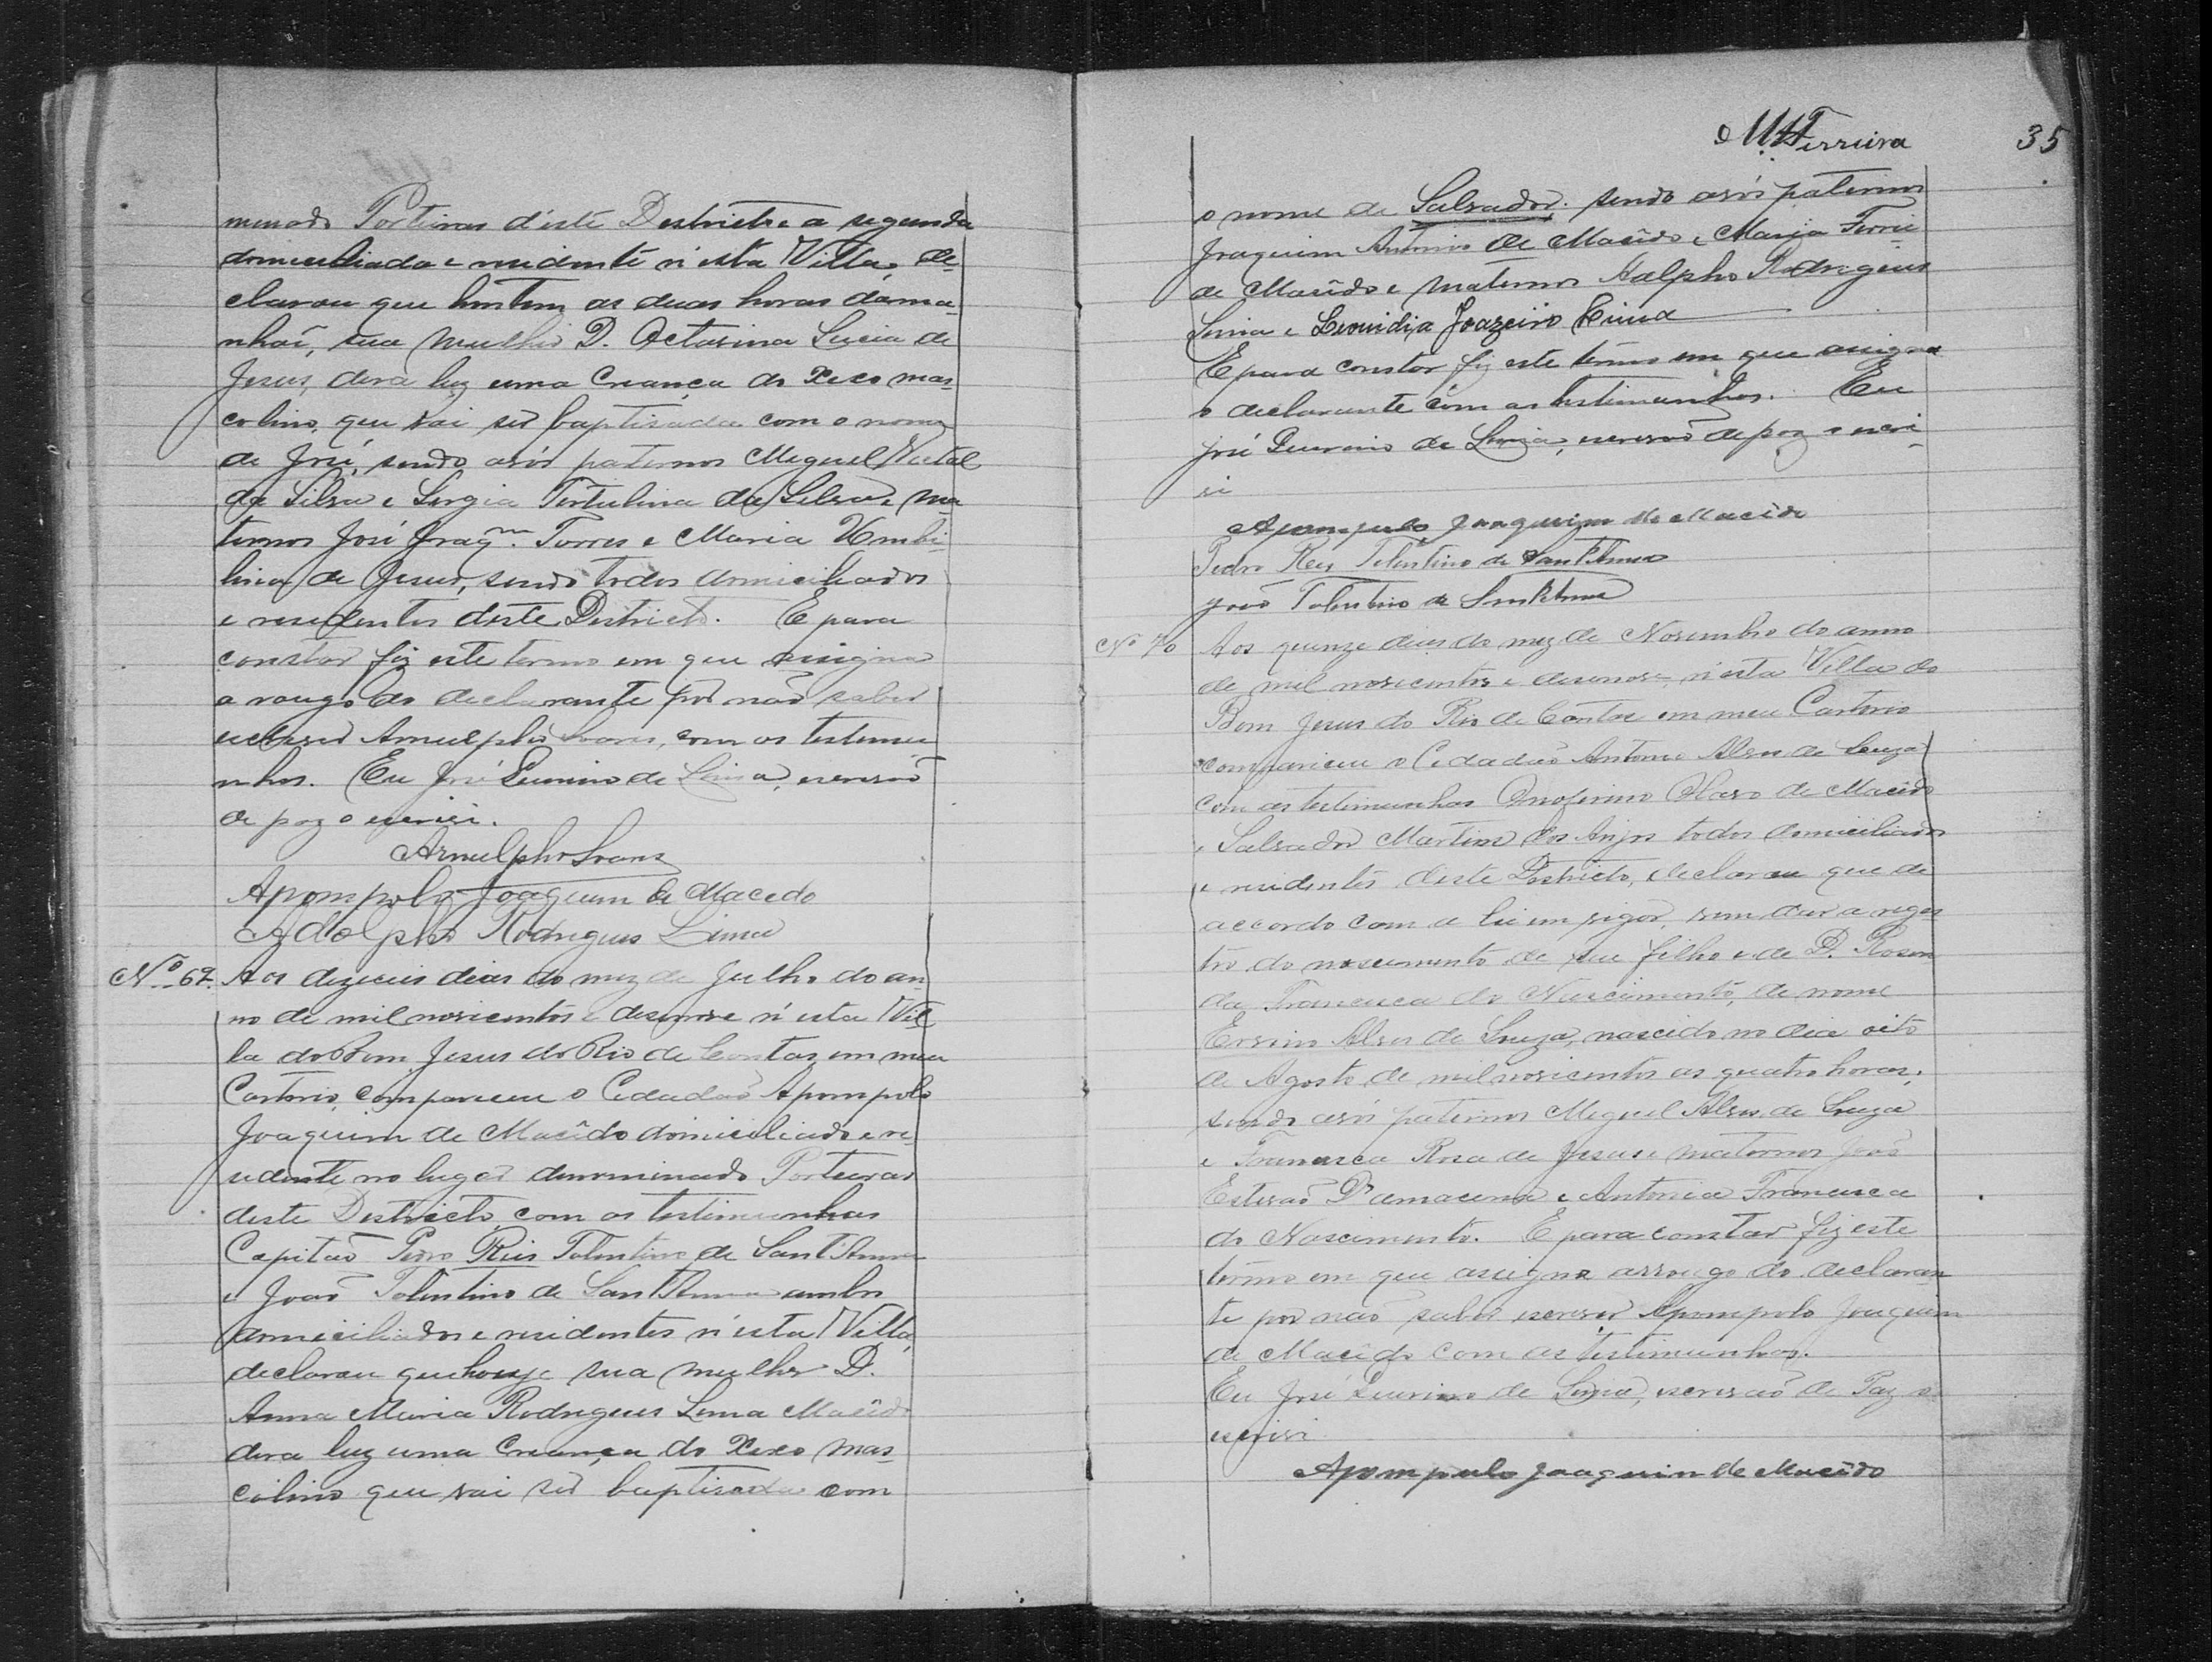 minado Porteiras d'este Destricto e a segunda
domiciliada e residente n'esta Villa, de-
clarou que hontem as duas horas da ma-
nhaî, sua mulher D. Octavina Lucia de
Jesus, dera luz uma Creança do Sexo mas-
colino, que vai ser baptisada com o nome
de José, sendo avós paternos Miguel Natal
da Silva e Sergia Tertulina da Silva e ma-
ternos José Joaqm. Torres e Maria Umbi-
lina de Jesus, sendo todos domiciliados
e residentes deste Destricto. E para
constar fiz este termo em que assigna
a rougo do declarante por não saber
escrever Arnulpho Soares, com as testemu-
nhas. Eu José de Lima, escrivaõ
de paz o escrivi.
Arnulpho Soares
Apompolo Joaquim de Macedo
Adolpho Rodrigues Lima
No. 67. Aos dezeseis dias do mez de Julho do an-
no de mil novicentos e desenove n'esta Vil-
la do Bom Jesus do Rio de Contas em meu
Cartorio, compareceu o Cedadaõ Apompolo
Joaquim de Macêdo domiciliado e re-
sidente no lugar denominado Porteiras
deste Destricto, com as testimunhas
Capitaõ Pedro Reis Tolentino de Sant'Anna
e Joaõ Tolentino de Sant'Anna ambos
domiciliados e residentes n'esta Villa,
declarou que houje sua mulher D.
Anna Maria Rodrigues Lima Macêdo
dera luz uma Creança do Sexo mas-
colino que vai ser baptisada com
M. Ferreira 35
o nome de Salvador. sendo avós paternos
Joaquim Antonio de Macêdo e Maria
de Macêdo e maternos Adolpho Rodrigues
Lima e Leonidia Joazeiro Lima
E para constar fiz este têrmo em que assigna
o declarante com as testimunhas. Eu
José de Lima, escrivaõ de paz o escri-
vi
Apompolo Joaquim de Macêdo
Pedro Reis Tolentino de Sant'Anna
Joaõ Tolentino de Sant'Anna
No 70 Aos quinze dias do mez de Novembro do anno
de mil novicentos e desenove, n'esta Villa do
Bom Jesus do Rio de Contas em meu Cartorio
compareceu o Cedadaõ Antonio Alves de Souza
com as testimunhas Onoferino Olavo de Macêdo
e Salvador Martins dos Anjos todos domiciliados
e residentes deste Destricto, declarou que de
accordo com a lei em vigor, vem dar a reges-
tro do nascimento de seu filho e de D. Rosen-
da Francisca do Nascimento, de nome
Ersino Alves de Souza, nascido no dia oito
de Agosto de mil novicentos as quatro horas,
sendo avós paternos Miguel Alves de Souza
e Francisca Rosa de Jesus e maternos Joaõ
Estevaõ Damacena e Antonia Francisca
do Nascimento. E para constar fiz este
têrmo em que assigna arrougo do declaran-
te por naõ saber escrever Apompolo Joaquim
de Macêdo com as testimunhas.
Eu José de Lima, escrivaõ de Paz o
escrivi
Apompolo Joaquim de Macêdo